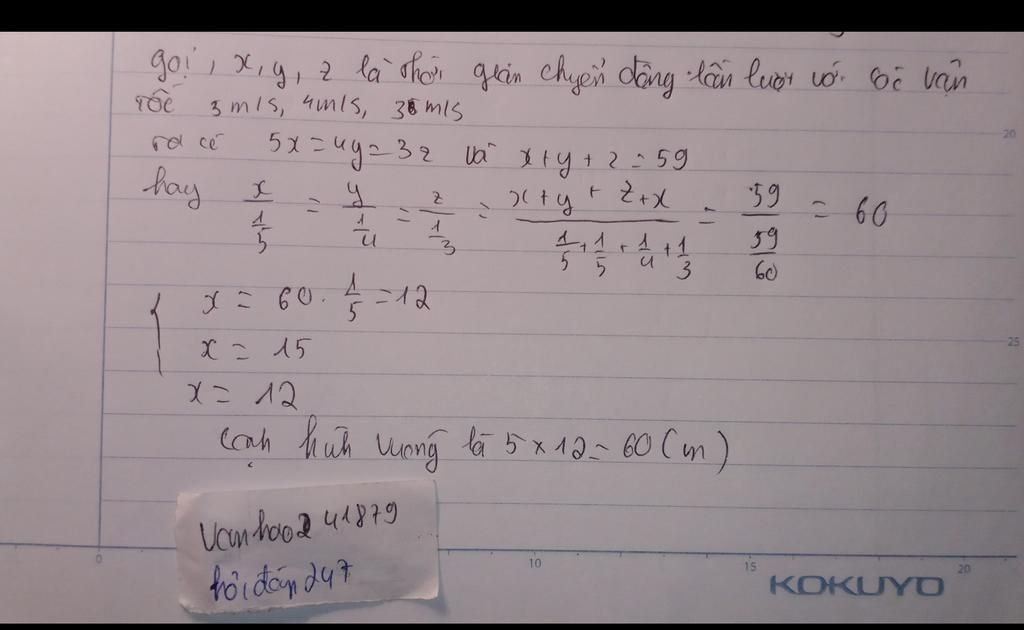 gọi, x, y, z là thời gian chuyển động lần lượt với các vận
tốc 5 m/s, 4m/s, 3 m/s
ta có 5x = 4y = 3z và x + y + z = 59
hay x/(1/5) = y/(1/4) = z/(1/3) = (x + y + z + x)/(1/5 + 1/5 + 1/4 + 1/3) = 59/(59/60) = 60
{ x = 60 . 1/5 = 12
x = 15
x = 12
Cạnh hình vuông là 5 x 12 = 60 (m)
vanhao241879
hỏi đáp 247
20
25
0
10
15
20
KOKUYO